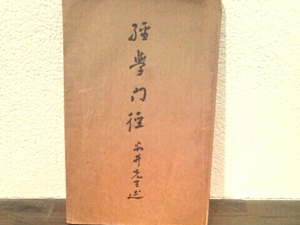 經學門徑
求井先生述